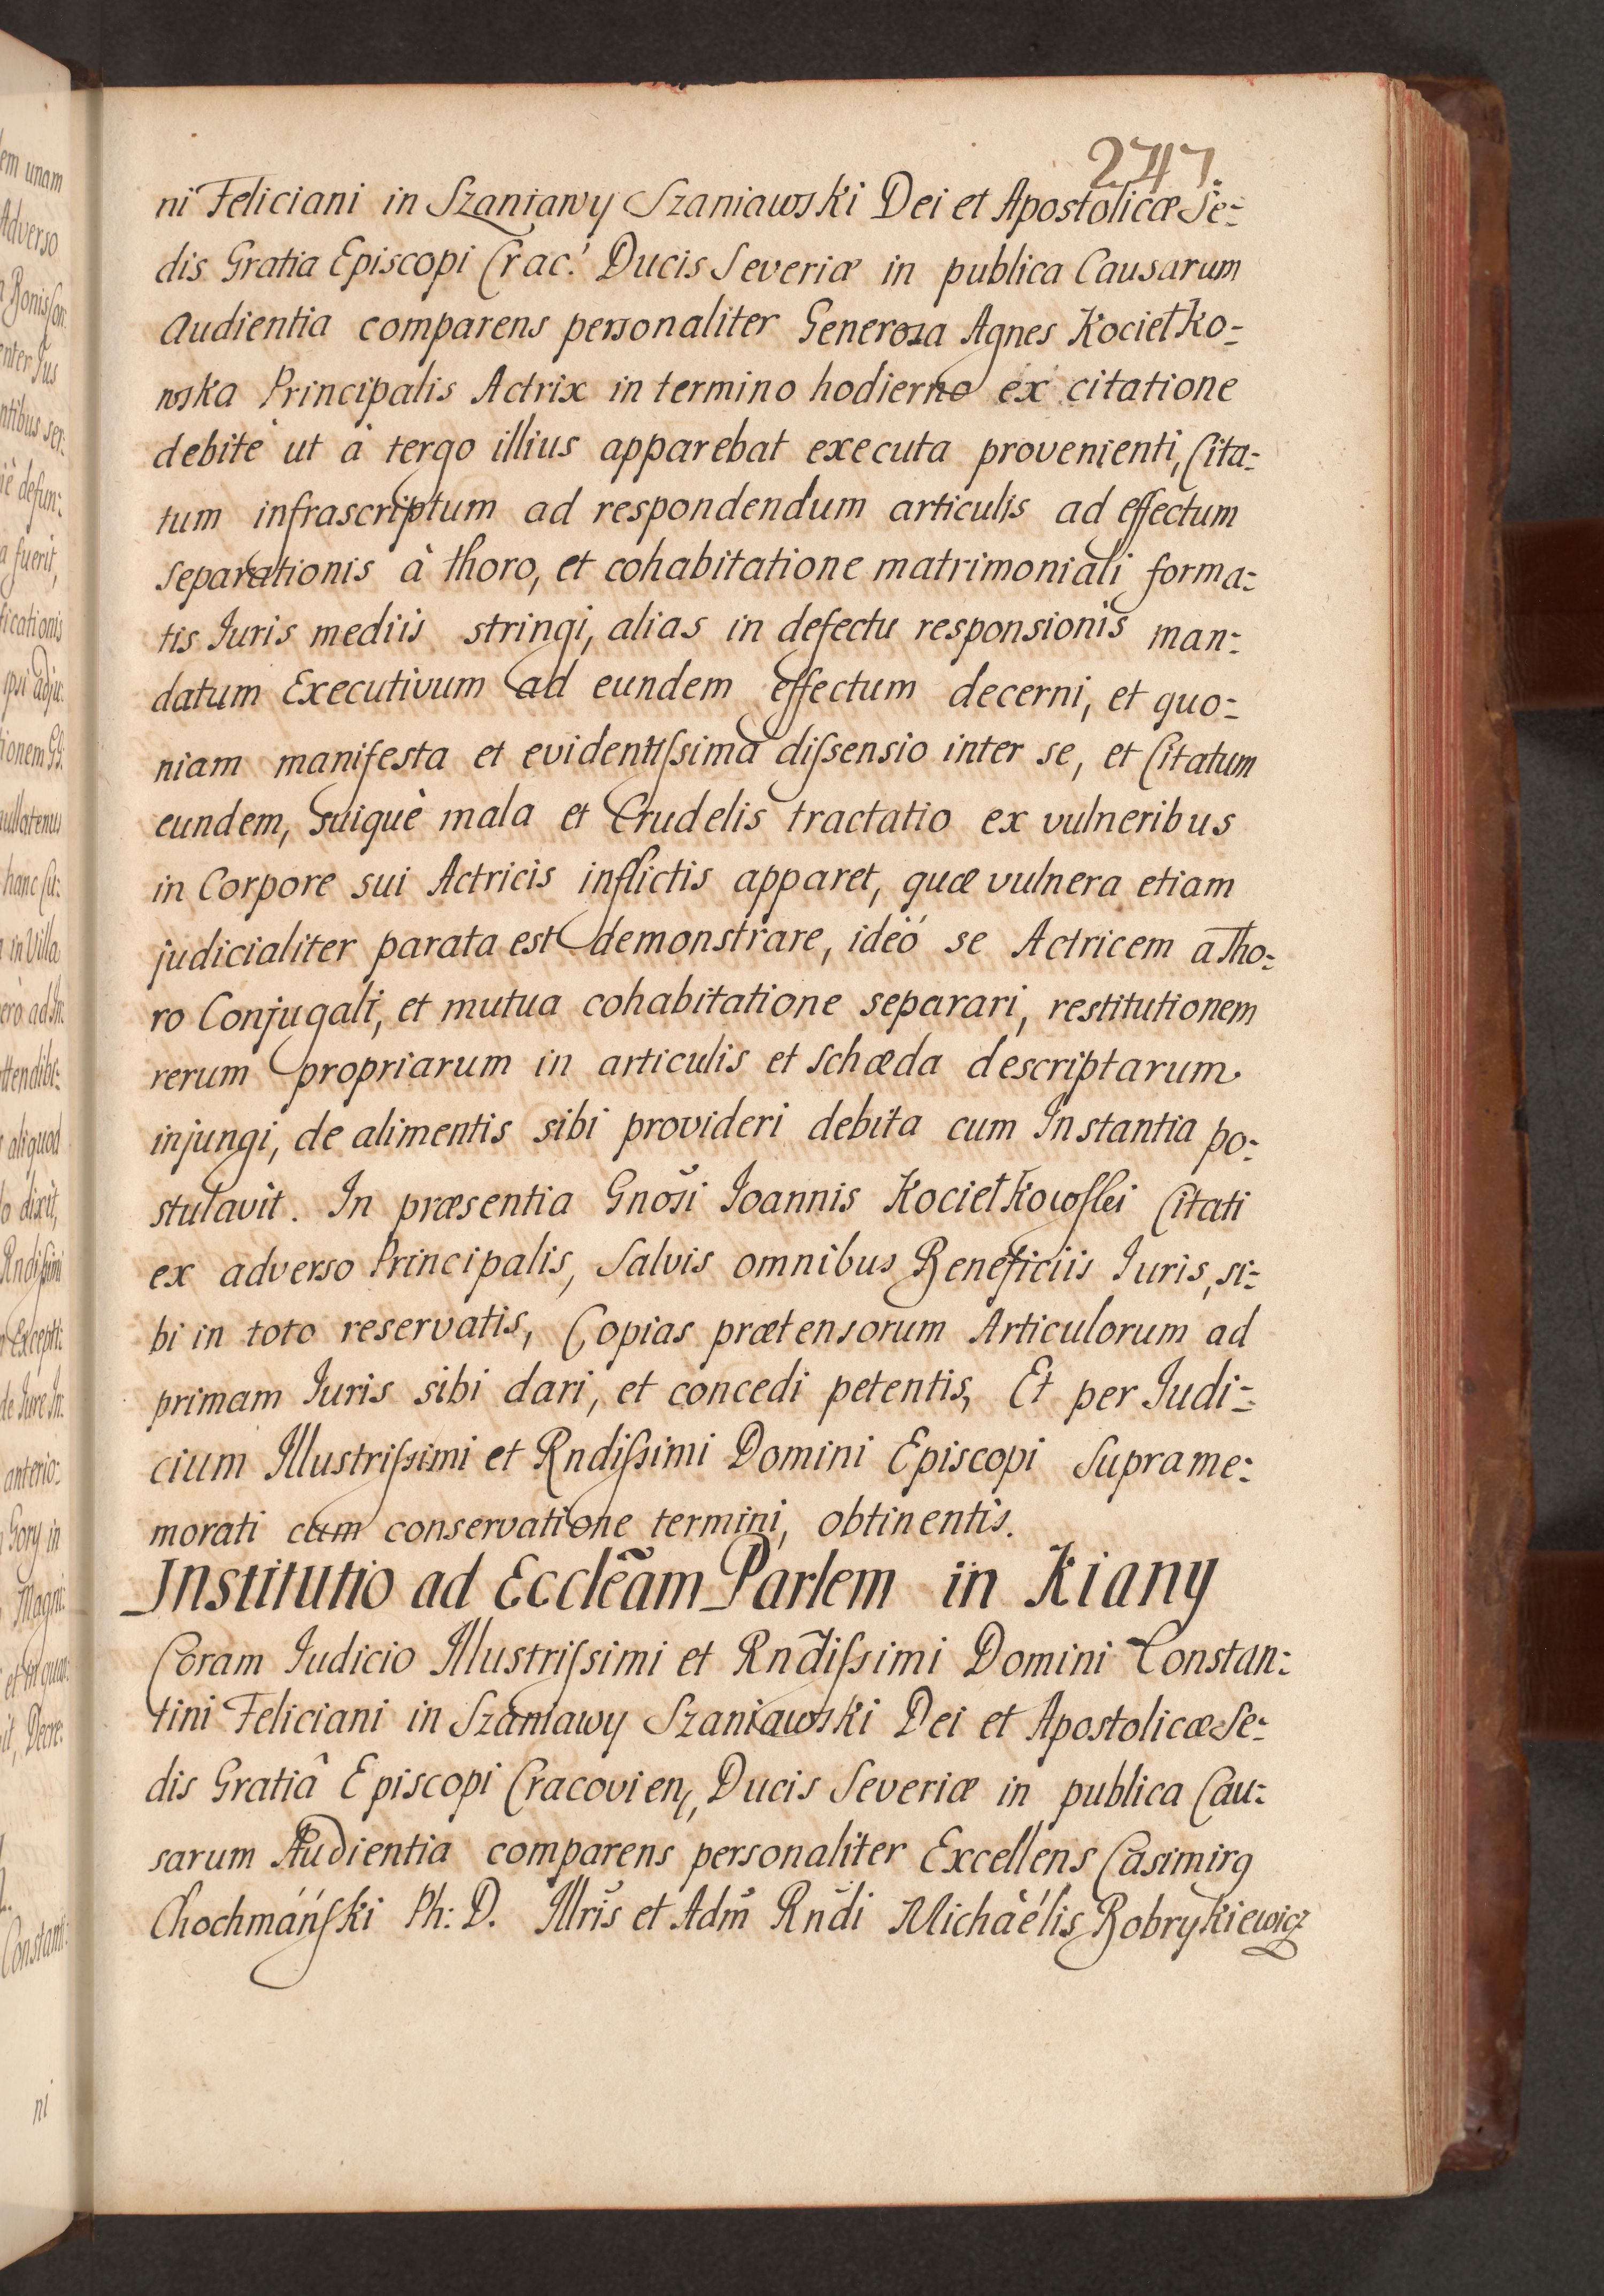 247.
ni Feliciani in Szaniawy Szaniawski Dei et Apostolicæ Se:
dis Gratia Episcopi Crac: Ducis Severiæ in publica Causarum
Audientia comparens personaliter Generosa Agnes Kociełko-
wska Principalis Actrix in termino hodierno ex citatione
debitè ut à tergo illius apparebat executa provenienti, Cita:
tum infrascriptum ad respondendum articulis ad effectum
separationis à thoro, et cohabitatione matrimoniali forma:
tis Iuris mediis stringi, alias in defectu responsionis man:
datum Executivum ad eundem effectum decerni, et quo:
niam manifesta et evidentiſsima diſsensio inter se, et Citatum
eundem, suiquè mala et Crudelis tractatio ex vulneribus
in Corpore sui Actricis inflictis apparet, quæ vulnera etiam
judicialiter parata est demonstrare, ideó se Actricem a Tho:
ro Conjugali, et mutua cohabitatione separari, restitutionem
rerum propriarum in articulis et schæda descriptarum
injungi, de alimentis sibi provideri debita cum Instantia po:
stulavit. In præsentia Gnosi Ioannis Kociełkowſki Citati
ex adverso Principalis, Salvis omnibus Beneficiis Iuris, si:
bi in toto reservatis, Copias prætensorum Articulorum ad
primam Iuris sibi dari, et concedi petentis, Et per Iudi:
cium Illustriſsimi et Rndiſsimi Domini Episcopi Suprame:
morati cum conservatione termini, obtinentis.
Institutio ad Eccleãm Parlem in Kiany
Coram Iudicio Illustriſsimi et Rndiſsimi Domini Constan:
tini Feliciani in Szaniawy Szaniawski Dei et Apostolicæ Se:
dis Gratiâ Episcopi Cracovien, Ducis Severiæ in publica Cau:
sarum Audientia comparens personaliter Excellens Casimirg
Chochmáńſki Ph: D. Illris et Adm̃ Rndi Michàélis Bobrykiewicz